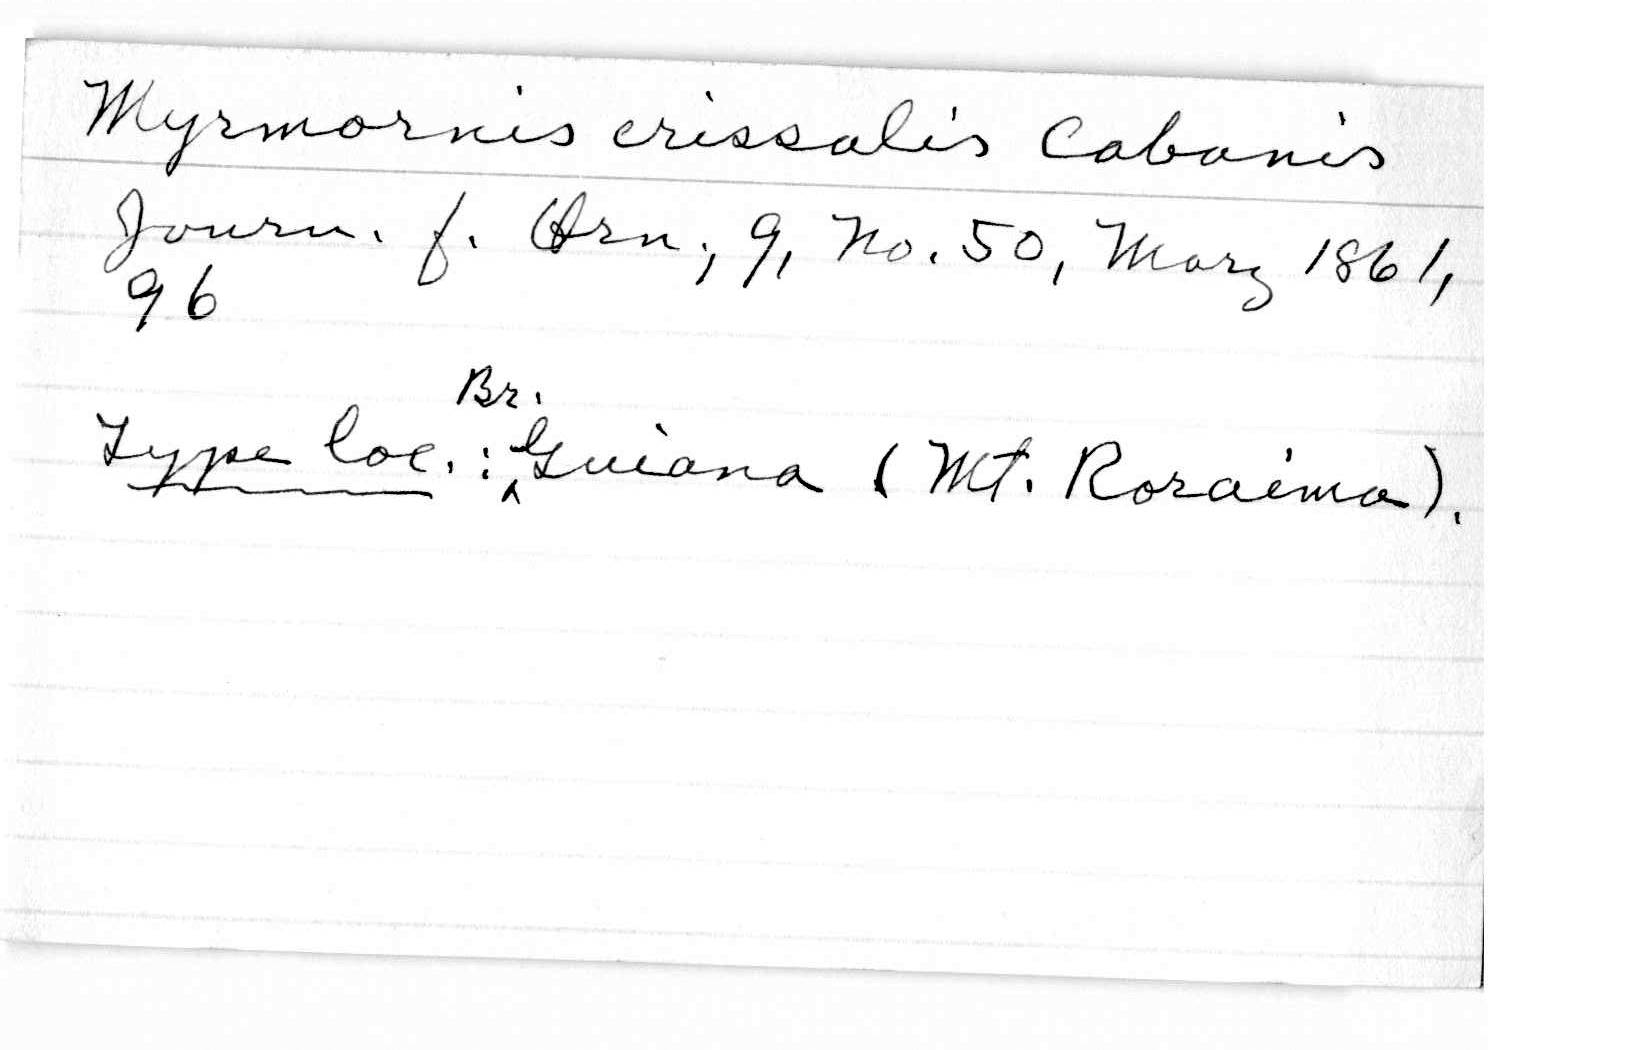 Myrmornis crissalis Cabanis
Journ. f. Orn., 9, No. 50, Marz 1861,
96
Br.
Type loc.: ‸Guiana (Mt. Roraima).